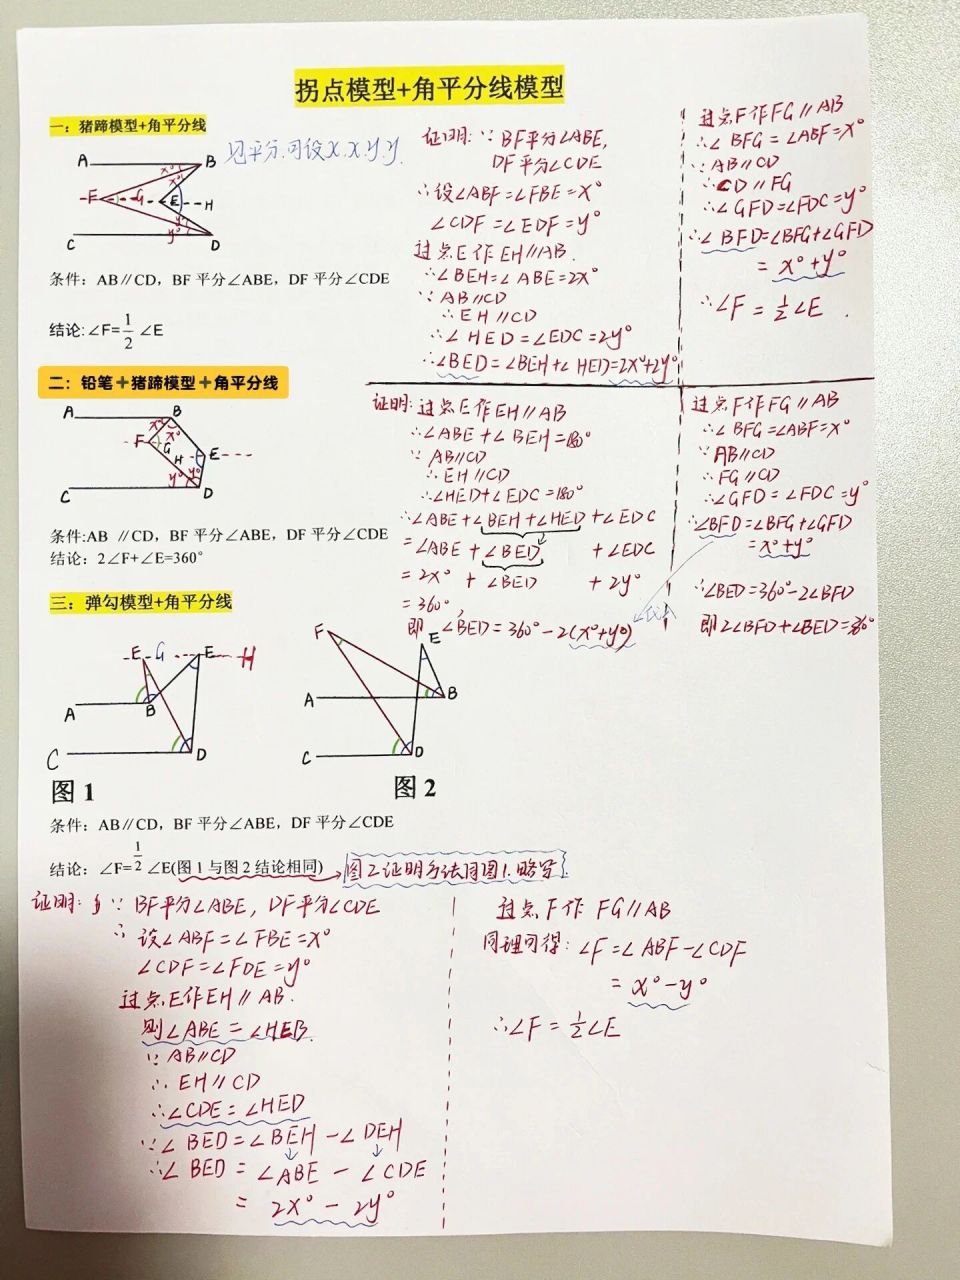 拐点模型+角平分线模型
一：猪蹄模型+角平分线
见平分.可设x.x.y.y.
A
B
x°
x°
F
G
E
H
y°
y°
C
D
条件：AB∥CD，BF 平分∠ABE，DF 平分∠CDE
结论:∠F=1/2 ∠E
证明:∵ BF平分∠ABE,
DF平分∠CDE
∴设∠ABF=∠FBE=x°
∠CDF=∠EDF=y°
过点E作EH∥AB.
∴∠BEH=∠ABE=2x°
∵AB∥CD
∴EH∥CD
∴∠HED=∠EDC=2y°
∴∠BED=∠BEH+∠HED=2x°+2y°
过点F作FG∥AB
∴∠BFG=∠ABF=x°
∵AB∥CD
∴CD∥FG
∴∠GFD=∠FDC=y°
∴∠BFD=∠BFG+∠GFD
=x°+y°
∴∠F=1/2∠E.
二：铅笔+猪蹄模型+角平分线
A
B
x°
x°
F
G
H
E
y°
y°
C
D
条件:AB ∥CD，BF 平分∠ABE，DF 平分∠CDE
结论：2∠F+∠E=360°
证明:过点E作EH∥AB
∴∠ABE+∠BEH=180°
∵AB∥CD
∴EH∥CD
∴∠HED+∠EDC=180°
∴∠ABE+∠BEH+∠HED+∠EDC
=∠ABE+∠BED+∠EDC
=2x°+∠BED+2y°
=360°
即∠BED=360°-2(x°+y°)
代入
过点F作FG∥AB
∴∠BFG=∠ABF=x°
∵AB∥CD
∴FG∥CD
∴∠GFD=∠FDC=y°
∴∠BFD=∠BFG+∠GFD
=x°+y°
∴∠BED=360°-2∠BFD
即2∠BFD+∠BED=360°
三：弹勾模型+角平分线
F
G
E
H
A
B
C
D
图 1
F
E
A
B
C
D
图 2
条件：AB∥CD，BF 平分∠ABE，DF 平分∠CDE
结论：∠F=1/2 ∠E(图 1 与图 2 结论相同)
图2证明方法同图1.略写.
证明:∵BF平分∠ABE,DF平分∠CDE
∴设∠ABF=∠FBE=x°
∠CDF=∠FDE=y°
过点E作EH∥AB.
则∠ABE=∠HEB.
∵AB∥CD
∴EH∥CD
∴∠CDE=∠HED
∵∠BED=∠BEH-∠DEH
∴∠BED=∠ABE-∠CDE
=2x°-2y°
过点F作FG∥AB
同理可得:∠F=∠ABF-∠CDF
=x°-y°
∴∠F=1/2∠E